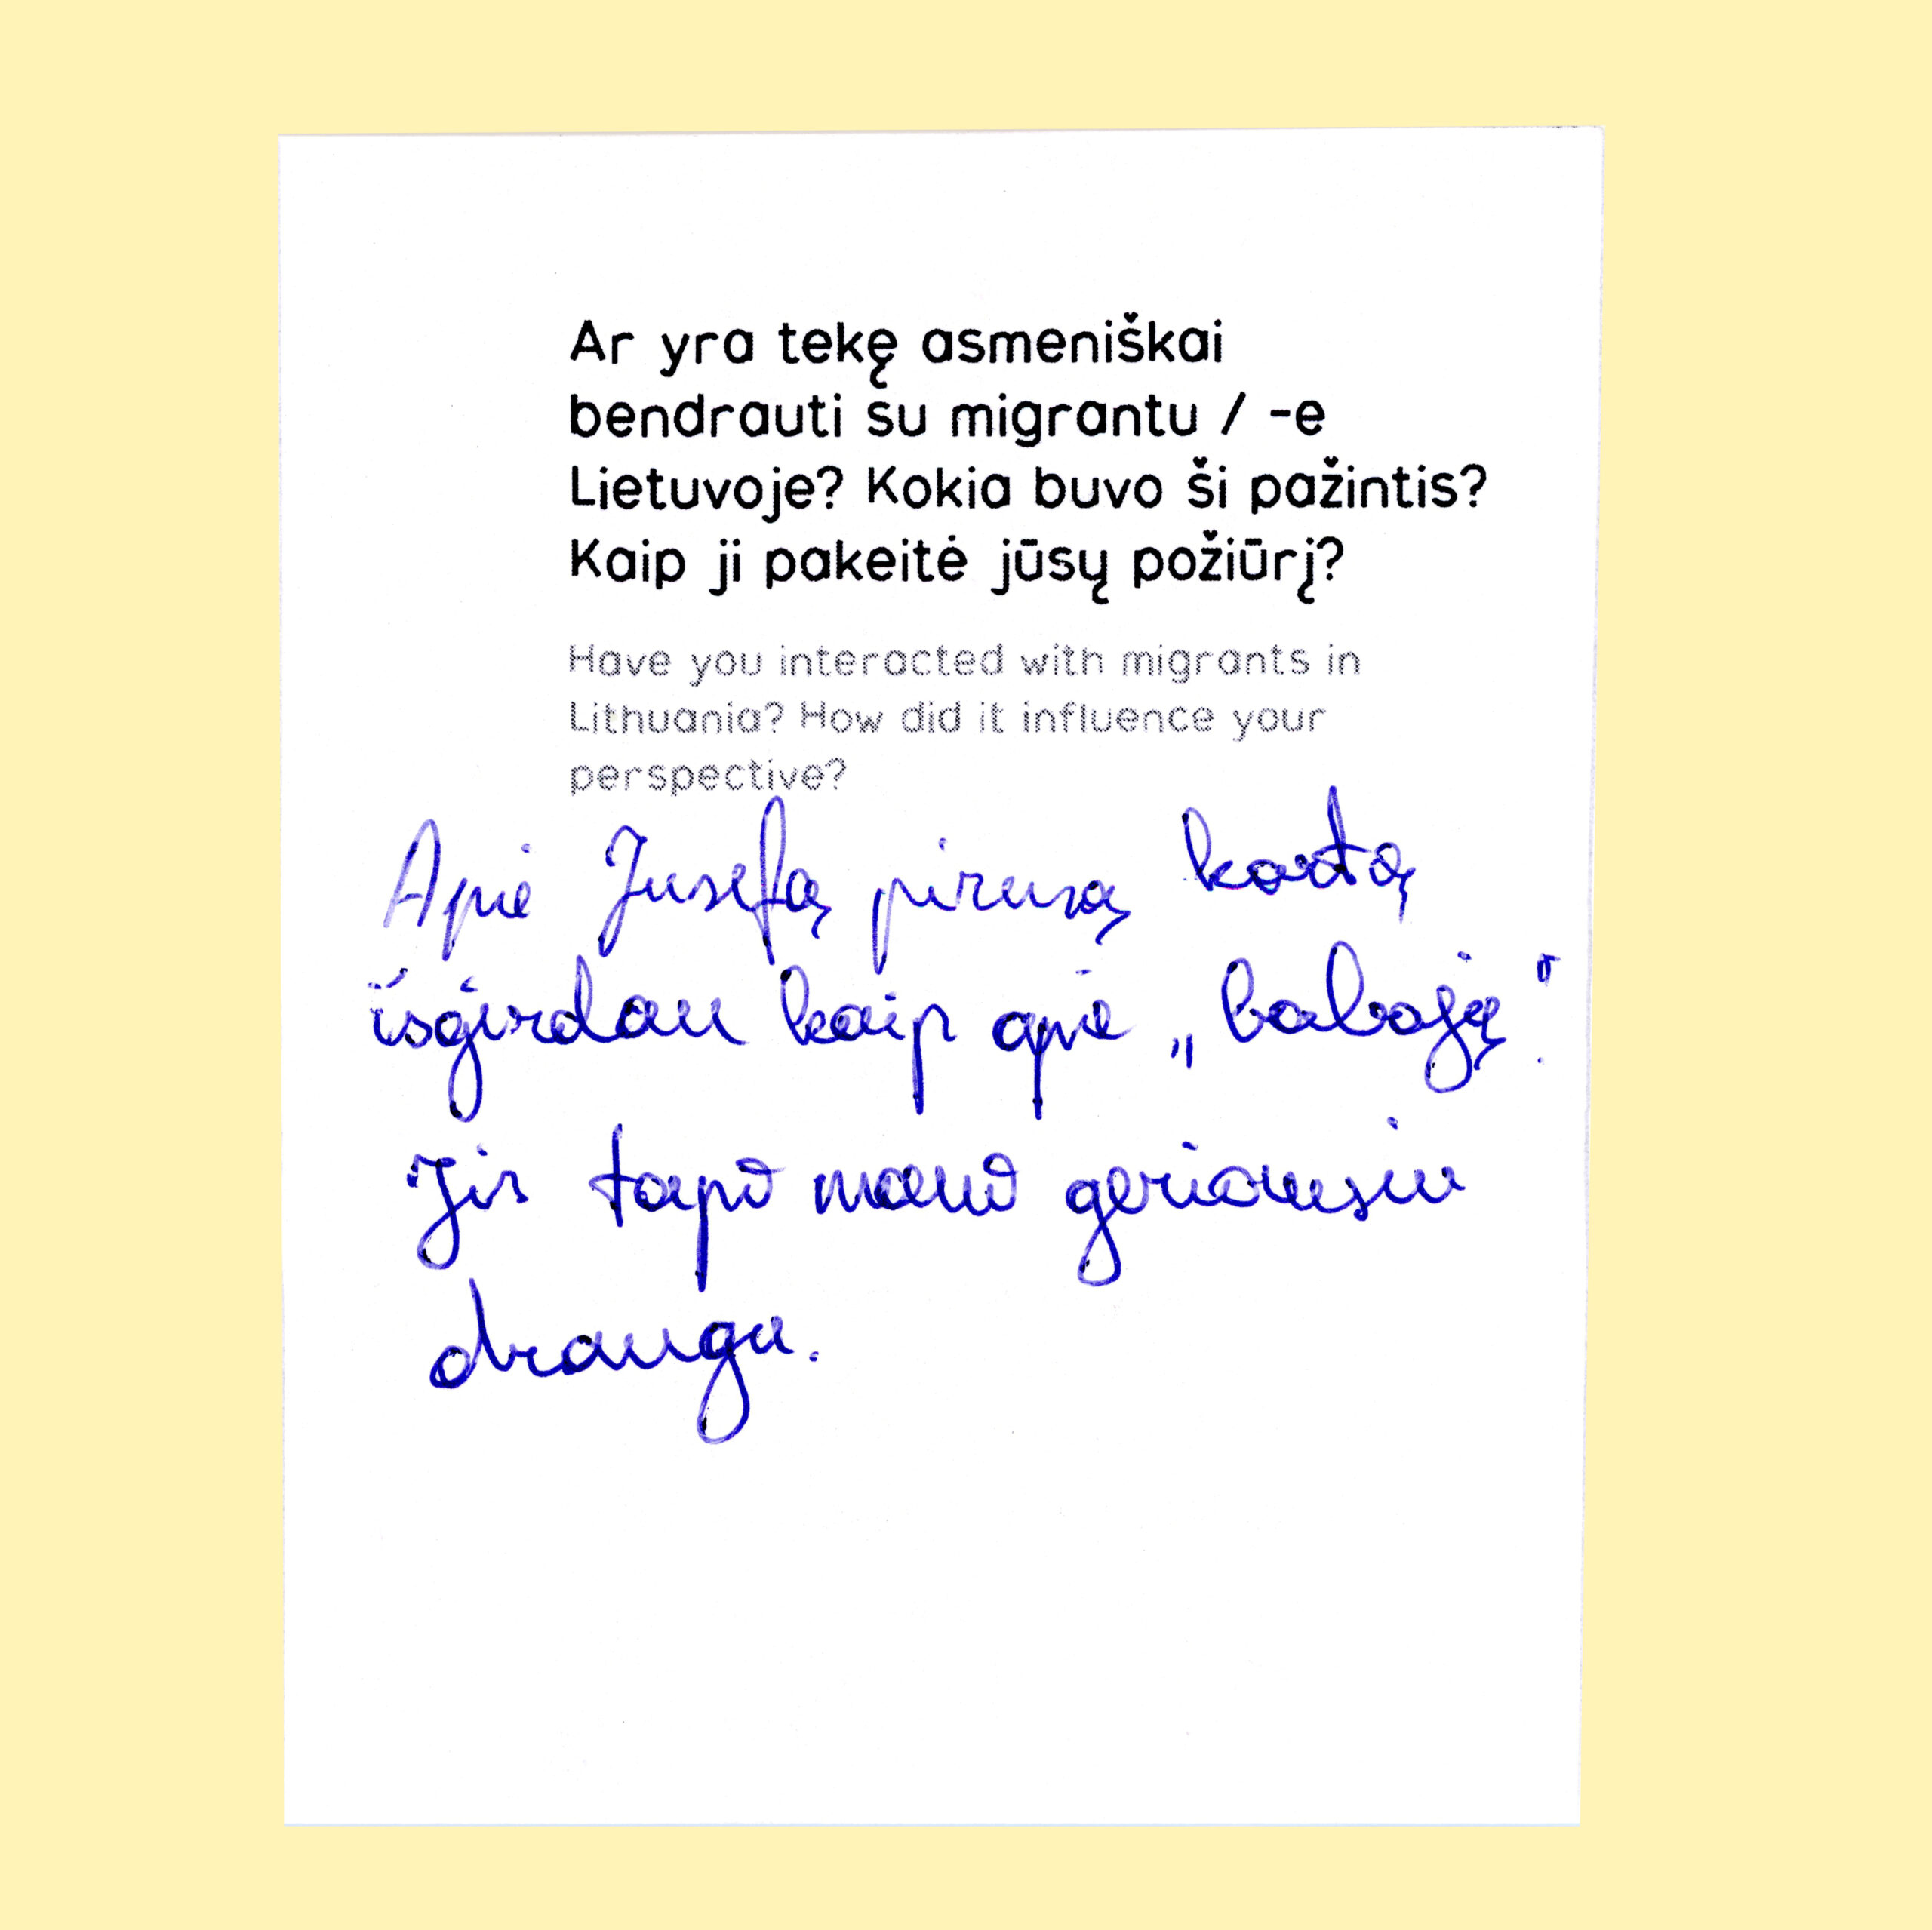 Ar yra tekę asmeniškai
bendrauti su migrantu / -e
Lietuvoje? Kokia buvo ši pažintis?
Kaip ji pakeitė jūsų požiūrį?
Have you interacted with migrants in
Lithuania? How did it influence your
perspective?
Apie Jusefą pirmą kartą
išgirdau kaip apie „babają“.
Jis tapo mano geriausiu
draugu.